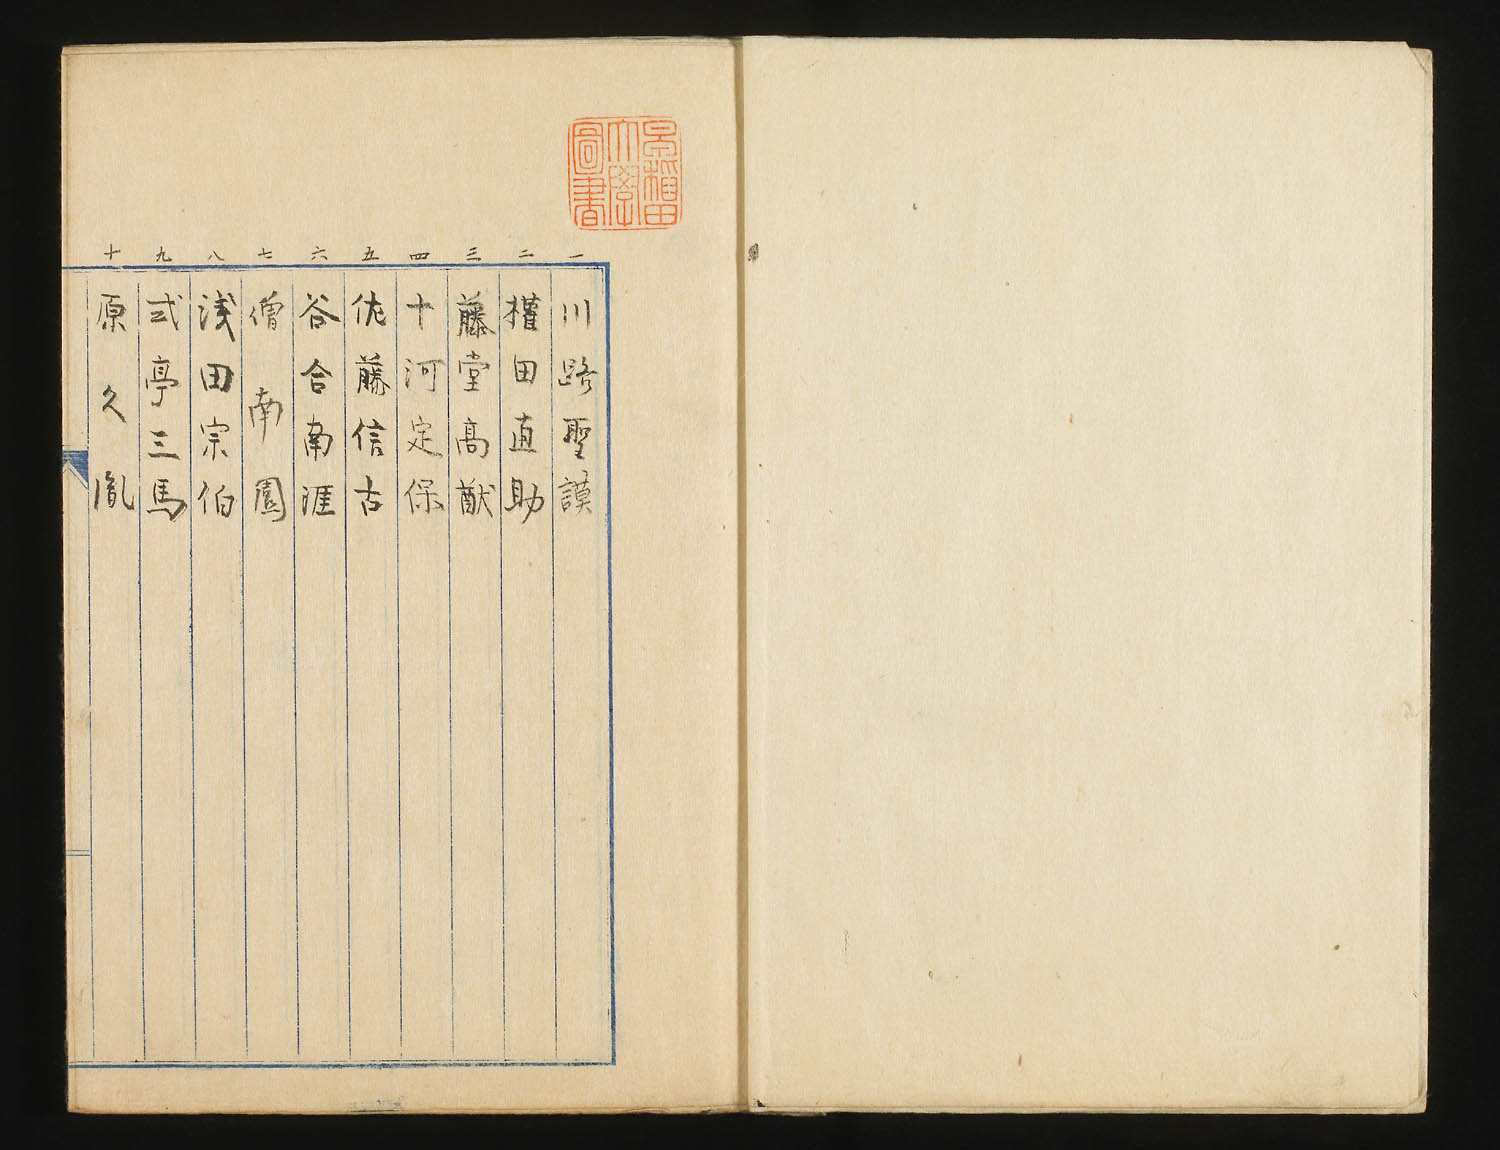 早稲田
大學
圖書
一 川路聖謨
二 権田直助
三 藤堂高猷
四 十河定保
五 佐藤信古
六 谷合南涯
七 僧南園
八 浅田宗伯
九 式亭三馬
十 原久胤